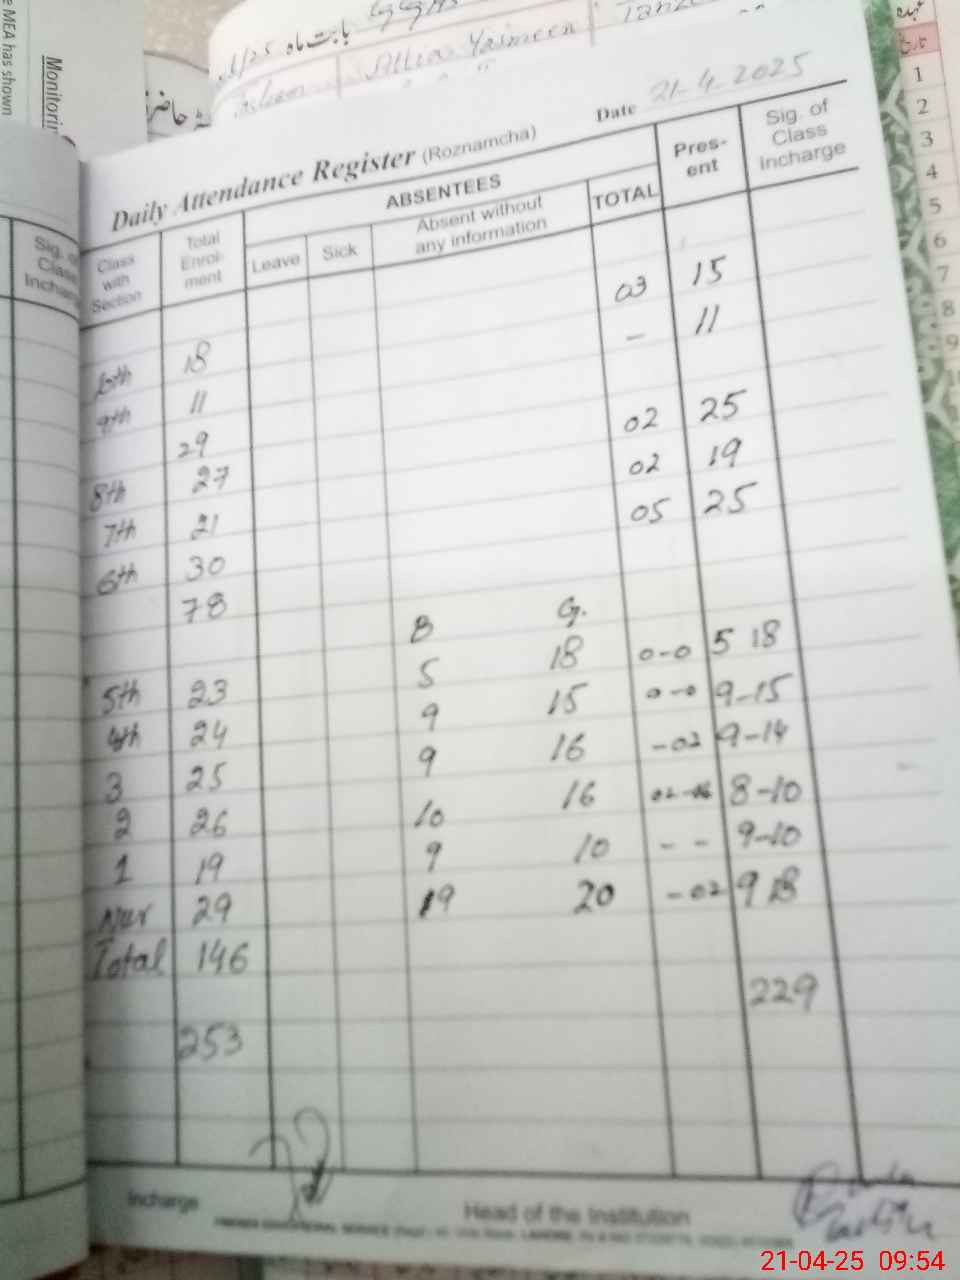 e MEA has shown
Monitorin
بابت ماہ
Attia Yasmeen
Date 21-4-2025
Daily Attendance Register (Roznamcha)
Class with Section | Total Enrolment | ABSENTEES | TOTAL | Present | Sig. of Class Incharge
Leave | Sick | Absent without any information
03 15
18 - 11
9th 11
29 02 25
8th 27 02 19
7th 21 05 25
6th 30
78 B G.
5th 23 5 18 0-0 5 18
4th 24 9 15 0-0 9-15
3 25 9 16 -02 9-14
2 26 10 16 8-10
1 19 9 10 - - 9-10
Nur 29 19 20 -02 9 18
Total 146
229
253
Incharge
Head of the Institution
Sig. o
Class
Incharg
تاریخ
1
2
3
4
5
6
7
8
9
21-04-25 09:54